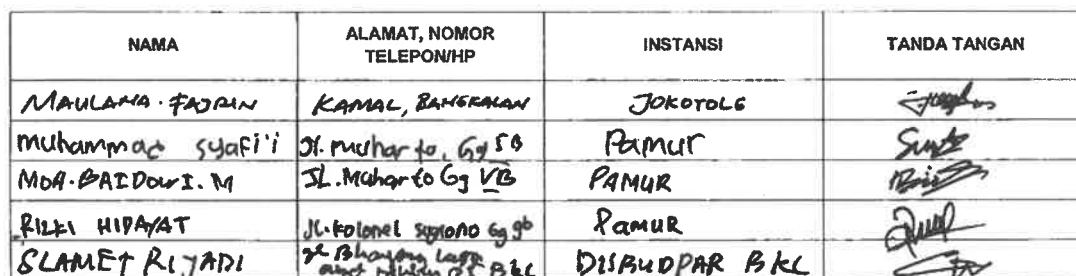 NAMA
ALAMAT, NOMOR
TELEPON/HP
INSTANSI
TANDA TANGAN
MAULANA. FAJRIN KAMAL, BANGKALAN JOKOTOLE
Muhammad syafi'i Jl. Muharto, Gg 5B Pamur
MOH. BAIDOWI. M JL. Muharto Gg VB PAMUR
RIZKI HIDAYAT Jl. Kolonel sugiono Gg 9b Pamur
SLAMET RIYADI Jl. Bhayangkara DISBUDPAR BKL
BKL